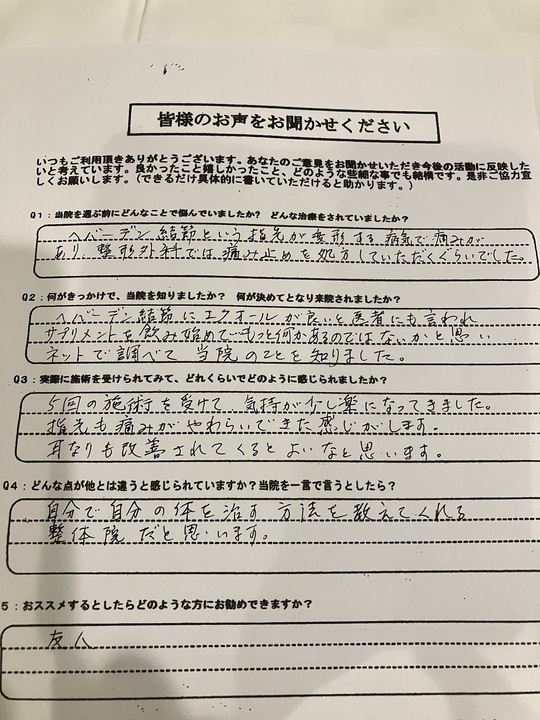 皆様のお声をお聞かせください
いつもご利用頂きありがとうございます。あなたのご意見をお聞かせいただき今後の活動に反映した
いと考えています。良かったこと嬉しかったこと、どのような些細な事でも結構です。是非ご協力宜
しくお願いします。（できるだけ具体的に書いていただけると助かります。）
Q1：当院を選ぶ前にどんなことで悩んでいましたか？ どんな治療をされていましたか？
ヘバーデン結節という指先が変形する病気で痛みが
あり、整形外科では痛み止めを処方していただくぐらいでした。
Q2：何がきっかけで、当院を知りましたか？ 何が決めてとなり来院されましたか？
ヘバーデン結節にエクオールが良いと医者にも言われ
サプリメントを飲み始めてもっと何かあるのではないかと思い
ネットで調べて当院のことを知りました。
Q3：実際に施術を受けられてみて、どれくらいでどのように感じられましたか？
5回の施術を受けて、気持が少し楽になってきました。
指先も痛みがやわらいできた感じがします。
耳なりも改善されてくるとよいなと思います。
Q4：どんな点が他とは違うと感じられていますか？当院を一言で言うとしたら？
自分で自分の体を治す方法を教えてくれる
整体院だと思います。
5：おススメするとしたらどのような方にお勧めできますか？
友人